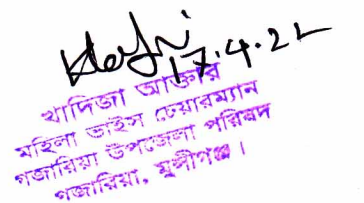 17.4.22
খাদিজা আক্তার
মহিলা ভাইস চেয়ারম্যান
গজারিয়া উপজেলা পরিষদ
গজারিয়া, মুন্সীগঞ্জ।